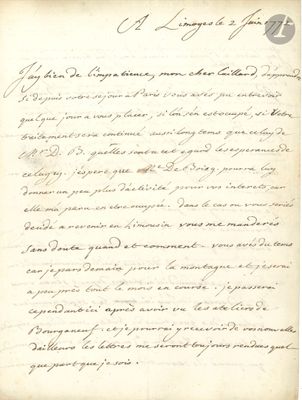 A Limoges le 2 Juin 177
J'ay bien de l'impatience, mon cher Caillard, d'apprendre
si depuis votre sejour a Paris vous avés pu entrevoir
quelque jour a vous placer, si l'on s'en est occupé, si Votre
traitement sera continué aussi longtems que celuy de
Mr. D. B. quelles sont a cet egard les esperances de
celuycy. j'espere que Me De Boisg. pourra luy
donner un peu plus d'activité pour vos interets car
elle m'a paru en etre occupée. dans le cas ou vous seriés
decidé a revenir en Limousin vous me manderés
sans doute quand et comment. vous avés du tems
car je pars demain pour la montagne et je serai
a peu près tout le mois en course. je passerai
cependant ici après avoir vu les ateliers de
Bourganeuf. et je pourrai y recevoir de vos nouvelles
d'ailleurs les lettres me seront toujours rendues quel
que part que je sois.